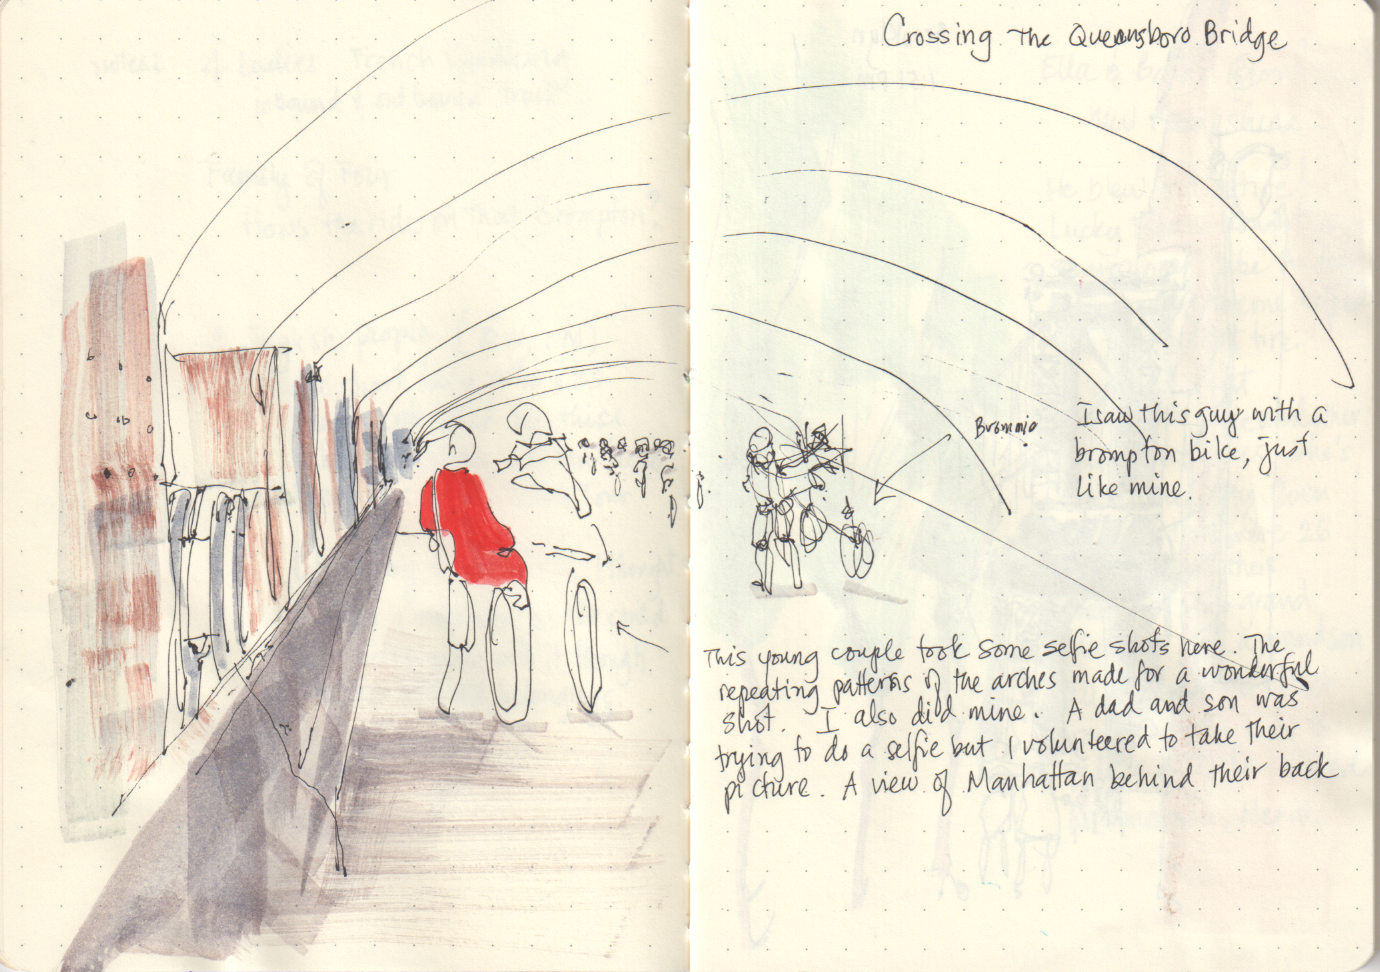 Crossing The Queensboro Bridge
Brommie
I saw this guy with a
brompton bike, just
like mine.
This young couple took some selfie shots here. The
repeating patterns of the arches made for a wonderful
shot. I also did mine. A dad and son was
trying to do a selfie but I volunteered to take their
picture. A view of Manhattan behind their back